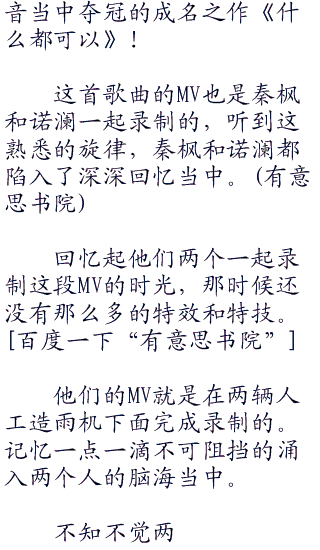 音当中夺冠的成名之作《什
么都可以》！
这首歌曲的MV也是秦枫
和诺澜一起录制的，听到这
熟悉的旋律，秦枫和诺澜都
陷入了深深回忆当中。(有意
思书院)
回忆起他们两个一起录
制这段MV的时光，那时候还
没有那么多的特效和特技。
[百度一下“有意思书院”]
他们的MV就是在两辆人
工造雨机下面完成录制的。
记忆一点一滴不可阻挡的涌
入两个人的脑海当中。
不知不觉两